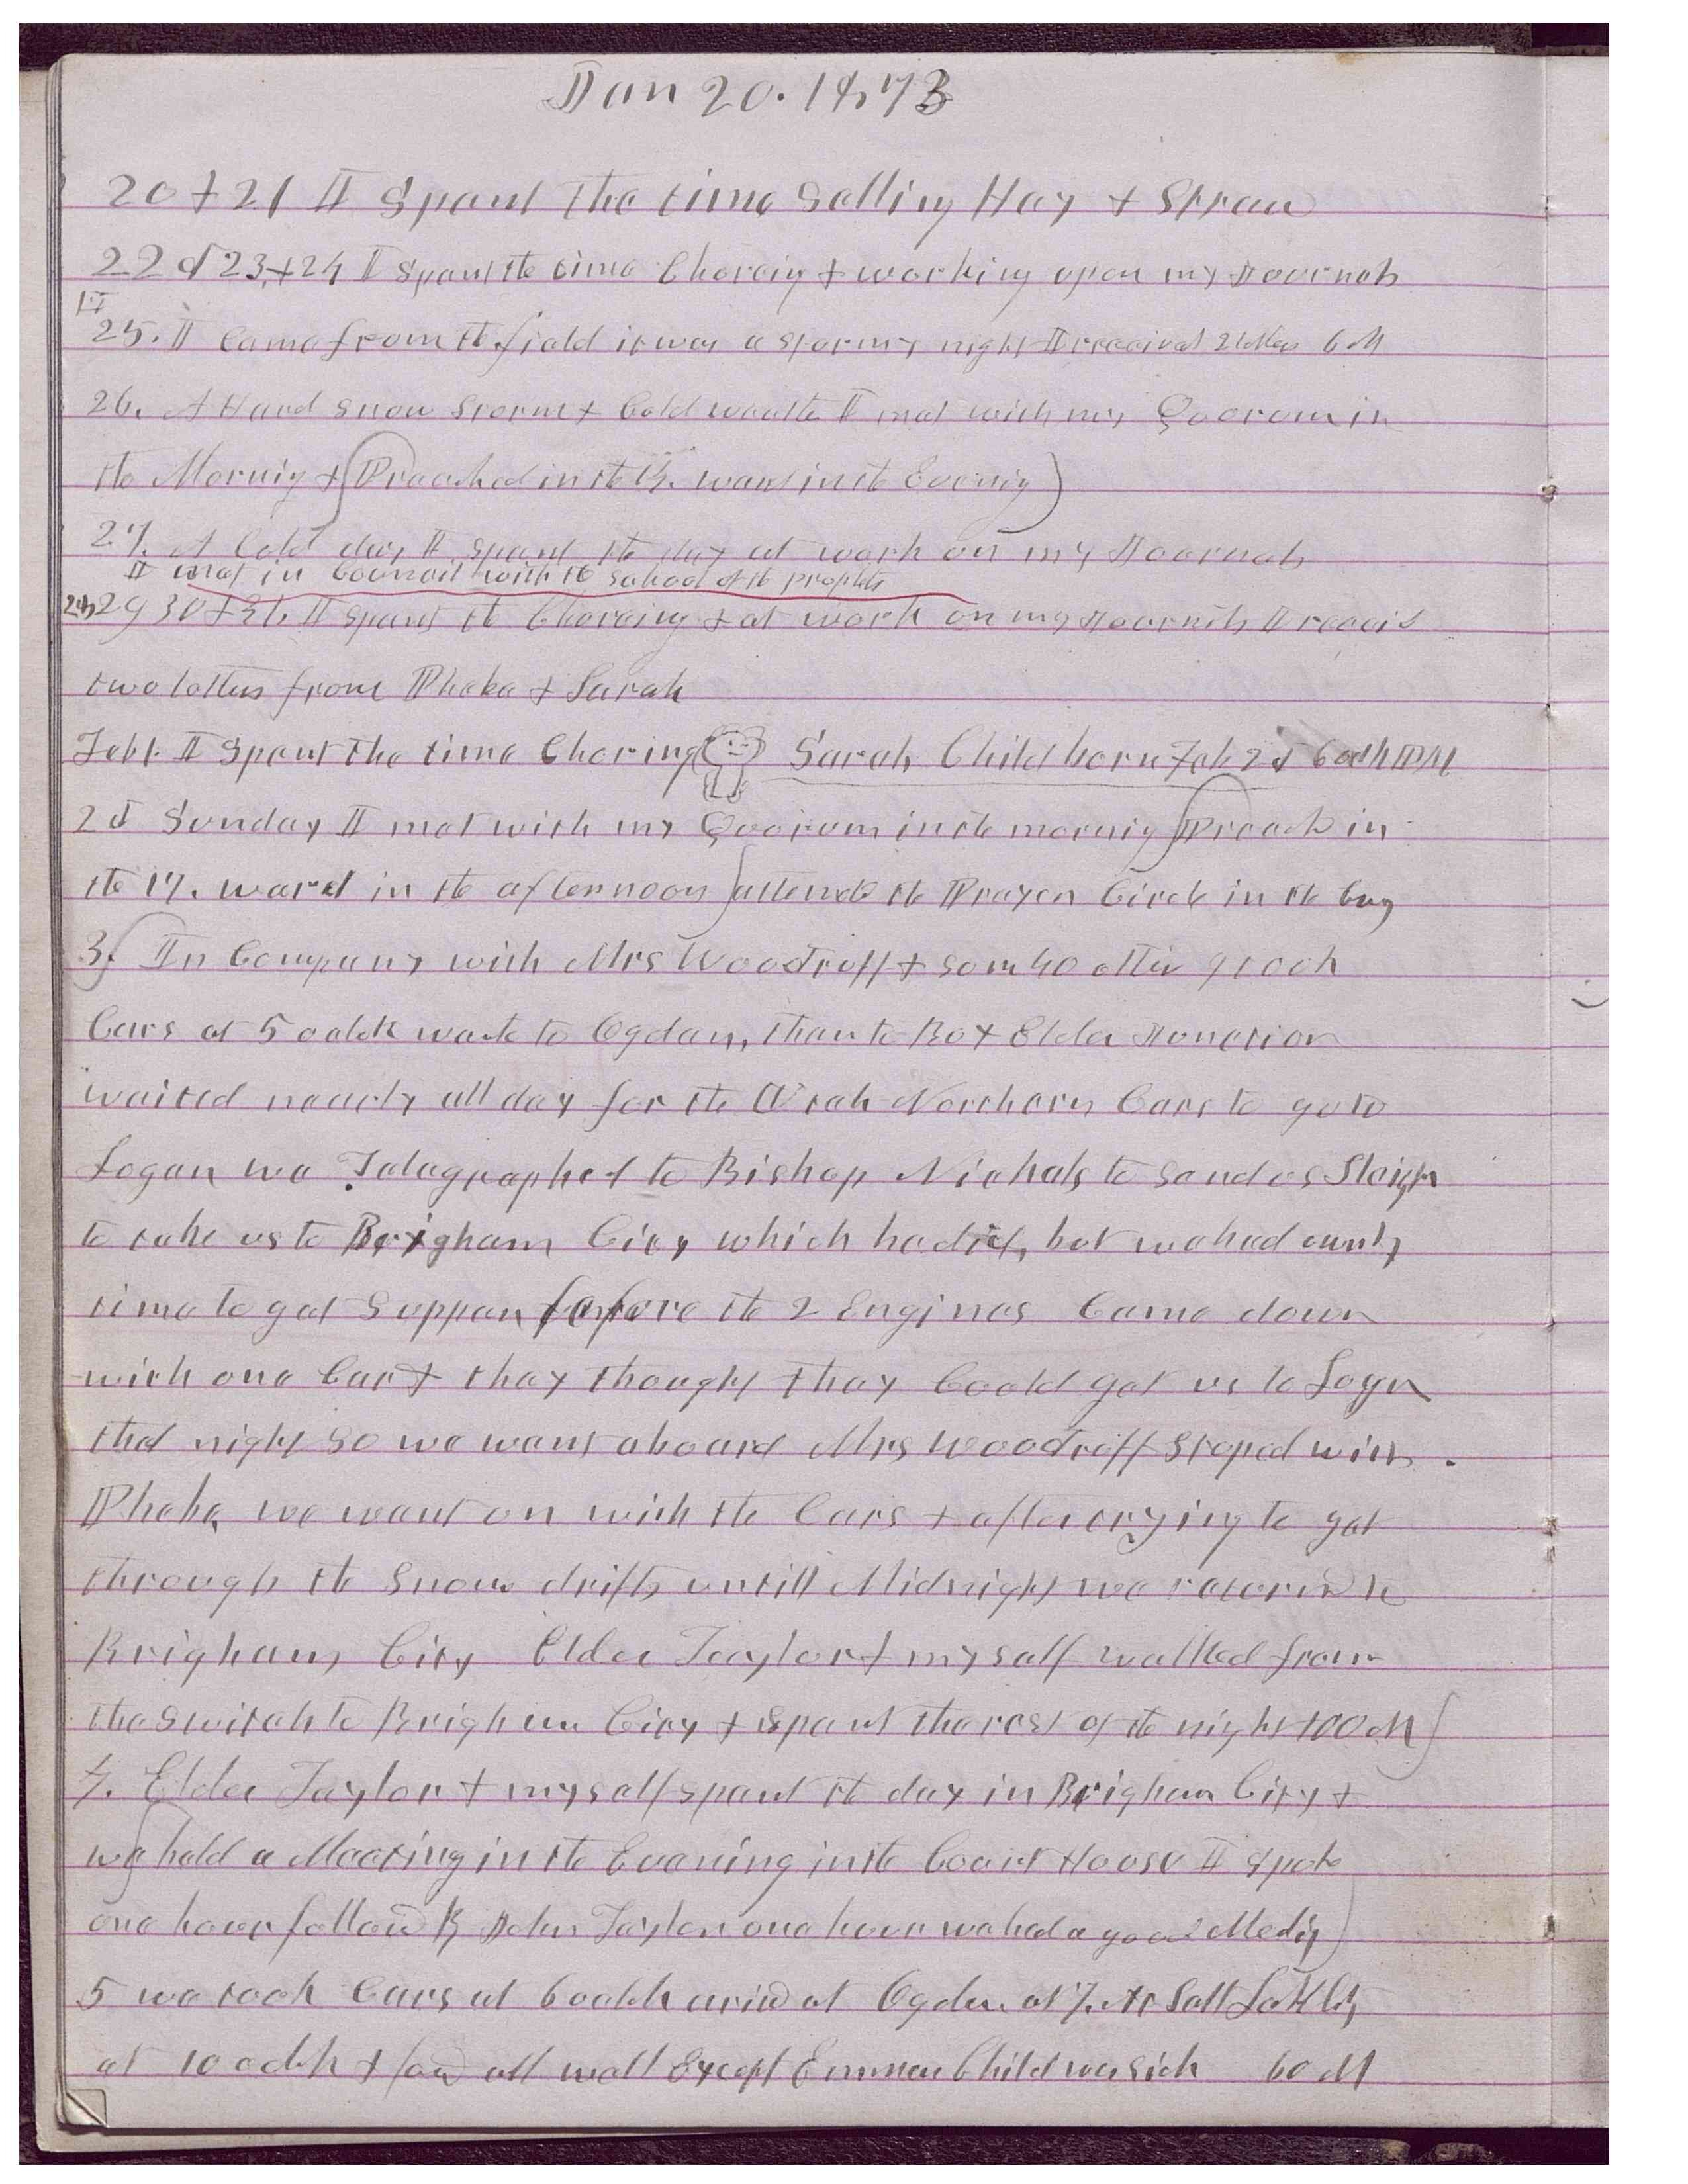 Jan 20. 1873
20 + 21 I spent the time Selling Hay + Straw
22d 23, + 24 I spent the time Choreing + working upon my Journals
25. I Came from the field it was a stormy night I received 2 letters 6 M
26. A Hard snow storm + Cold weather I met with my Quorum in
the Morning + Preached in the 13. ward in the Evening
27. A Cold day I spent the day at work on my Journals
I met in Council with the school of the prophets
28, 29 30 + 31. I spent the Choreing + at work on my Journals I receivd
two letters from Phebe + Sarah
Feb 1. I spent the time Choring Sarah Child born Feb 2d 6 oclk PM
2d Sunday I met with my Quorum in the morning Preach in
the 17. ward in the afternoon attended the Prayer Circle in the
3. In Company with Mrs Woodruff + som 40 other took
Cars at 5 oclok went to Ogden, then to Box Elder Junction
waited nearly all day for the Utah Northern Cars to go to
Logan we Telegraphed to Bishop Nichols to send us Sleigh
to take us to Brigham City which he did, but we had ownly
time to get Supper before the 2 Engines Came down
with one Car + they thought they Could get us to Logan
that night so we went aboard Mrs Woodruff stoped with
Phebe, we went on with the Cars + after trying to get
through the snow drifts untill Midnight we returned to
Brigham City Elder Taylor + myself walked from
the switch to Brigham City + spent the rest of the night 100 M
4. Elder Taylor + myself spent the day in Brigham City +
we held a Meeting in the Evening in the Court House I spoke
one hour followed By John Taylor one hour we had a good Meetig
5 we took Cars at 6 oclok arivd at Ogden at 7. At Salt Lake City
at 10 oclok + found all well Except Emma Child was sick 60 M